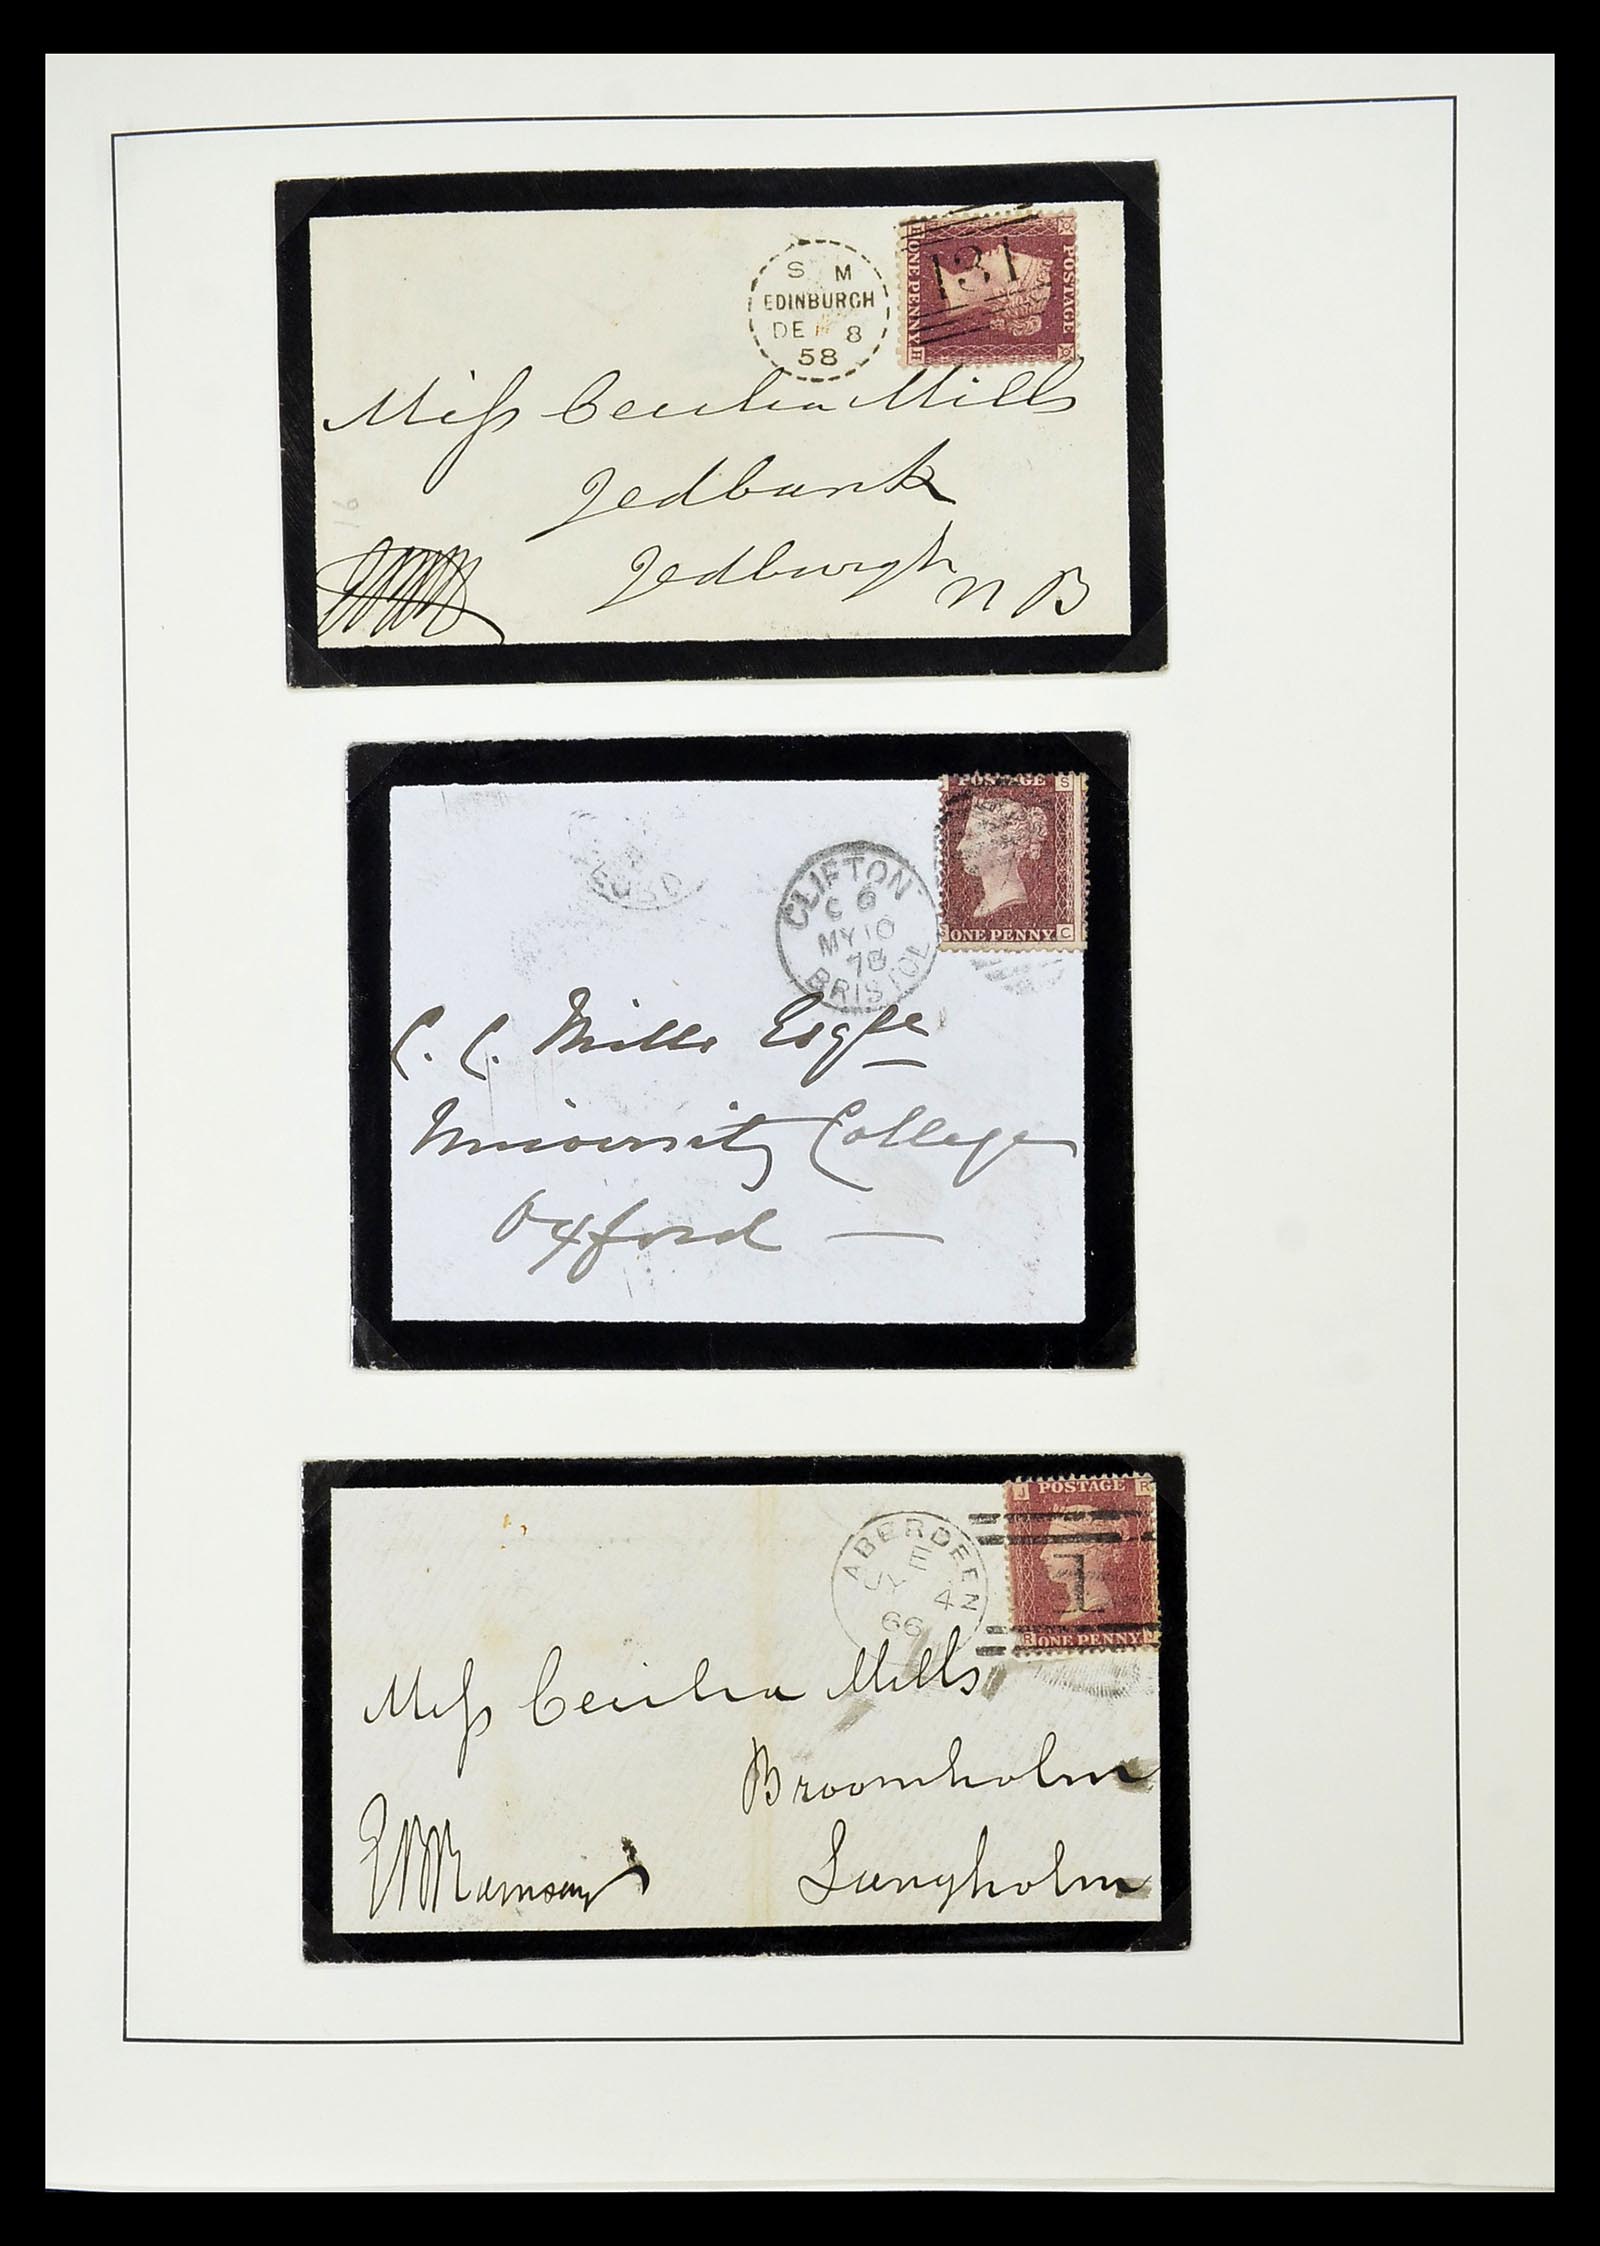 S M
EDINBURGH
DE 8
58
131
POSTAGE
ONE PENNY
H
H
Miss Cecilia Mills
Jedbank
Jedburgh
N B
16
POSTAGE
S
ONE PENNY
C
CLIFTON
C 6
MY 10
78
BRISTOL
C. C. Mills Esqre
University College
Oxford
J POSTAGE R
1
R ONE PENNY J
ABERDEEN
E
JY 4
66
Miss Cecilia Mills
Broomholm
Langholm
E B Ramsay